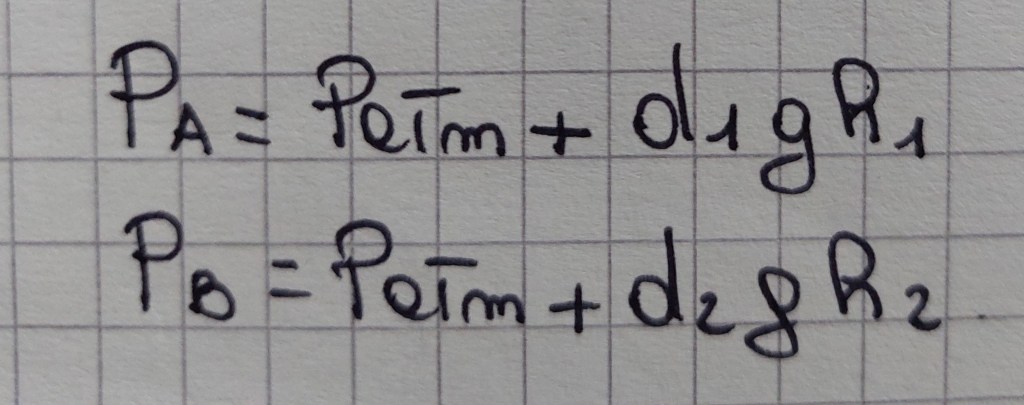 P_A = P_atm + d_1 g h_1
P_B = P_atm + d_2 g h_2